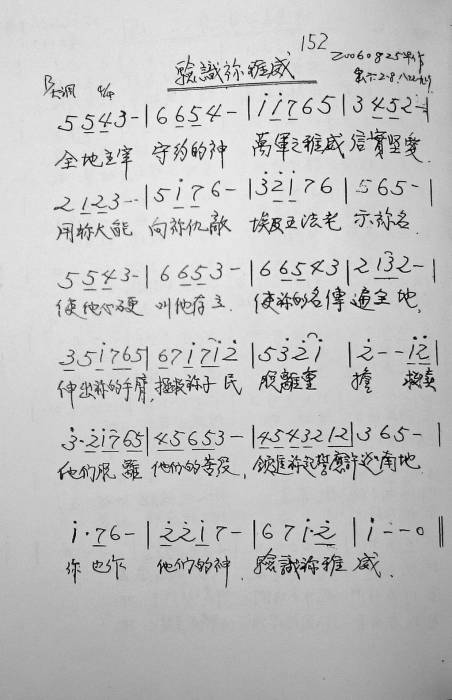 152
驗識祢雅威
20060825
B大調 4/4
5 5 4 3 - | 6 6 5 4 - | i i 7 6 5 | 3 4 5 2 - |
全地主宰 守約的神 萬軍之雅威 信實堅愛
2 1 2 3 - - | 5 i 7 6 - | 3 2 i 7 6 | 5 6 5 - |
用祢大能 向祢仇敵 埃及王法老 示祢名
5 5 4 3 - | 6 6 5 3 - | 6 6 5 4 3 | 2 1 3 2 - |
使他心硬 叫他存立 使祢的名傳遍全地,
3 5 i 7 6 5 | 6 7 i 7 i 2 | 5 3 2 i | 2 - - i 2 |
伸出祢的手臂, 拯救祢子民 脫離重擔 救贖
3 · 2 i 7 6 5 | 4 5 6 5 3 - | 4 5 4 3 2 1 2 | 3 6 5 - |
他們脫離 他們的苦役, 領進祢起誓應許迦南地
i · 7 6 - | 2 2 i 7 - | 6 7 i · 2 | i - - 0 ‖
你也作 他們的神 驗識祢雅威.